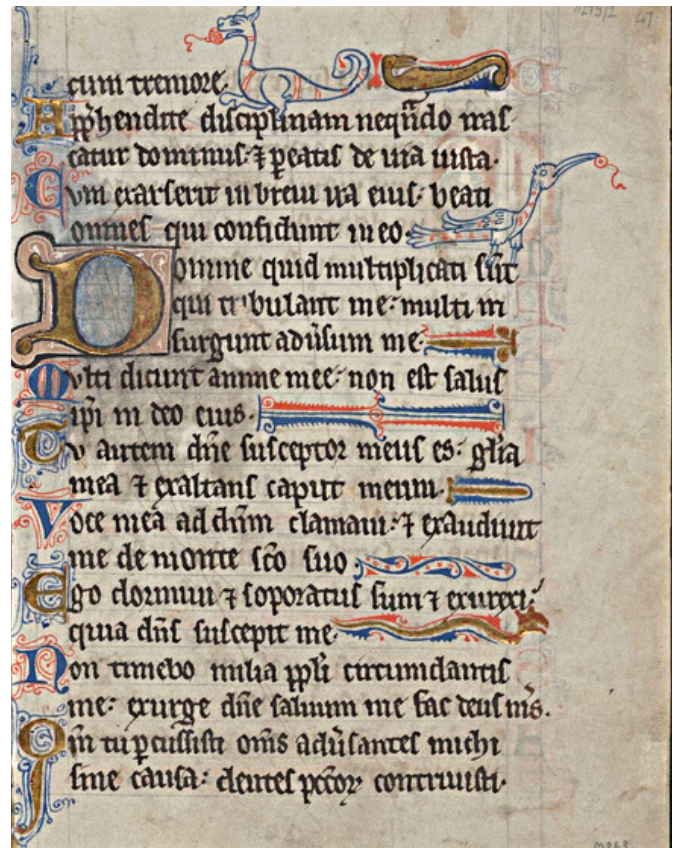 cum tremore.
Apphendite disciplinam neqñdo iras
catur dominus: ⁊ peatis de uia iusta.
Cvm exarserit in breui ira eius: beati
omnes qui confidunt in eo.
Domine quid multiplicati sūt
qui tribulant me: multi in
surgunt adūsum me.
Mvlti dicunt anime mee: non est salus
ipi in deo eius.
Tv autem dñe susceptor meus es: glīa
mea ⁊ exaltans caput meum.
Voce mea ad dñm clamaui: ⁊ exaudiuit
me de monte sc̄o suo
Ego dormiui ⁊ soporatus sum ⁊ exurexi:
quia dñs suscepit me.
Non timebo milia ppli circumdantis
me: exurge dñe saluum me fac deus ms̄.
Qm̄ tu pcussisti om̄s adūsantes michi
sine causa: dentes pccoꝝ contriuisti.